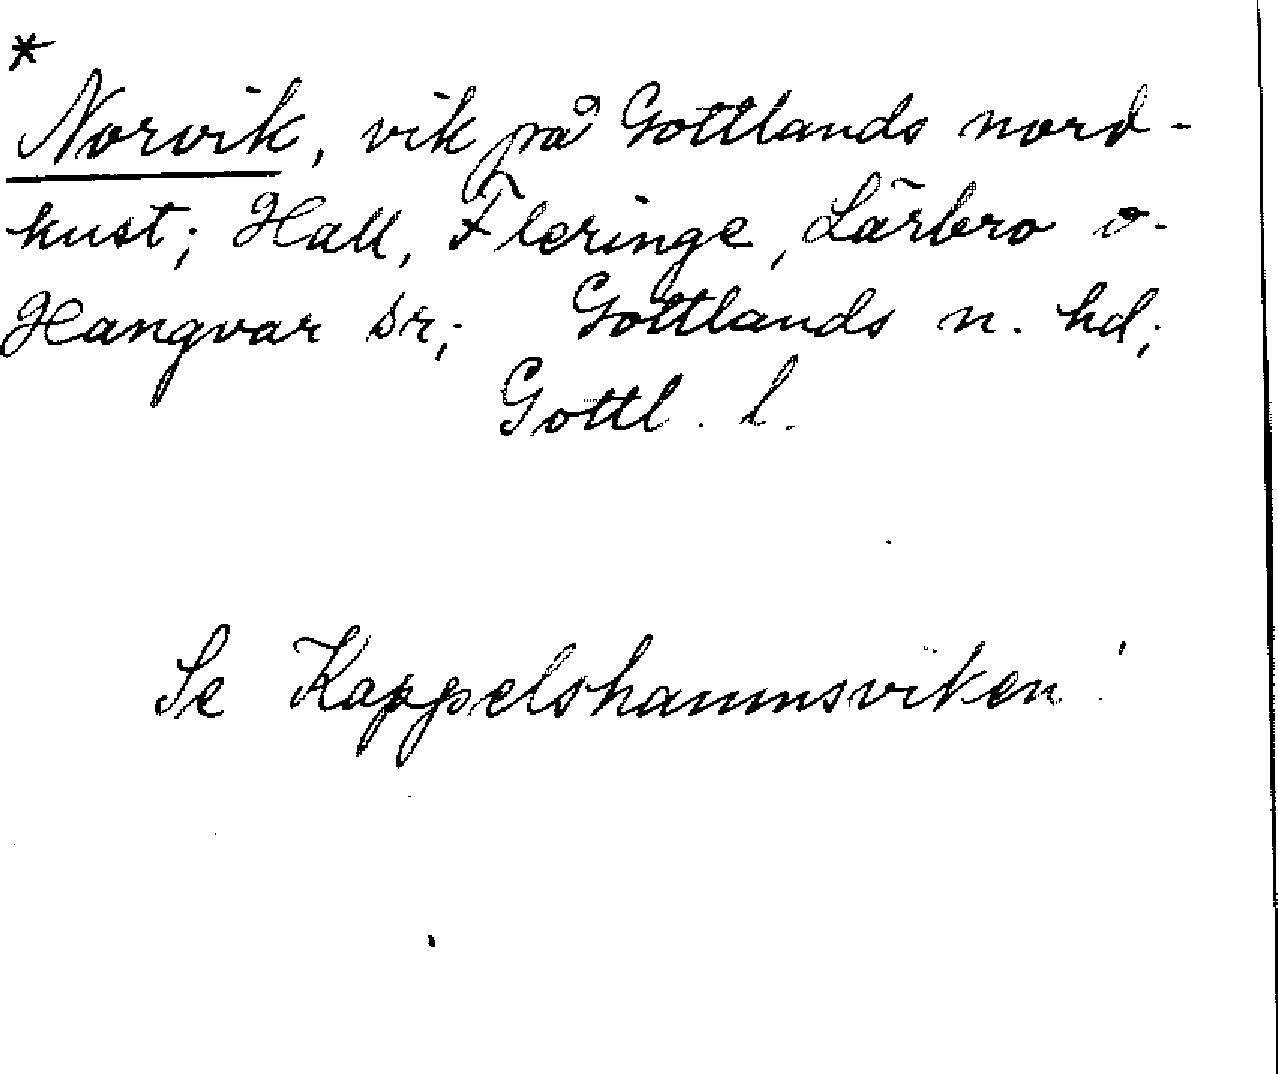 *
Norvik, vik på Gottlands nord-
kust; Hall, Fleringe, Lärbro o.
Hangvar sr; Gottlands n. hd;
Gottl. l.
Se Kappelshamnsviken